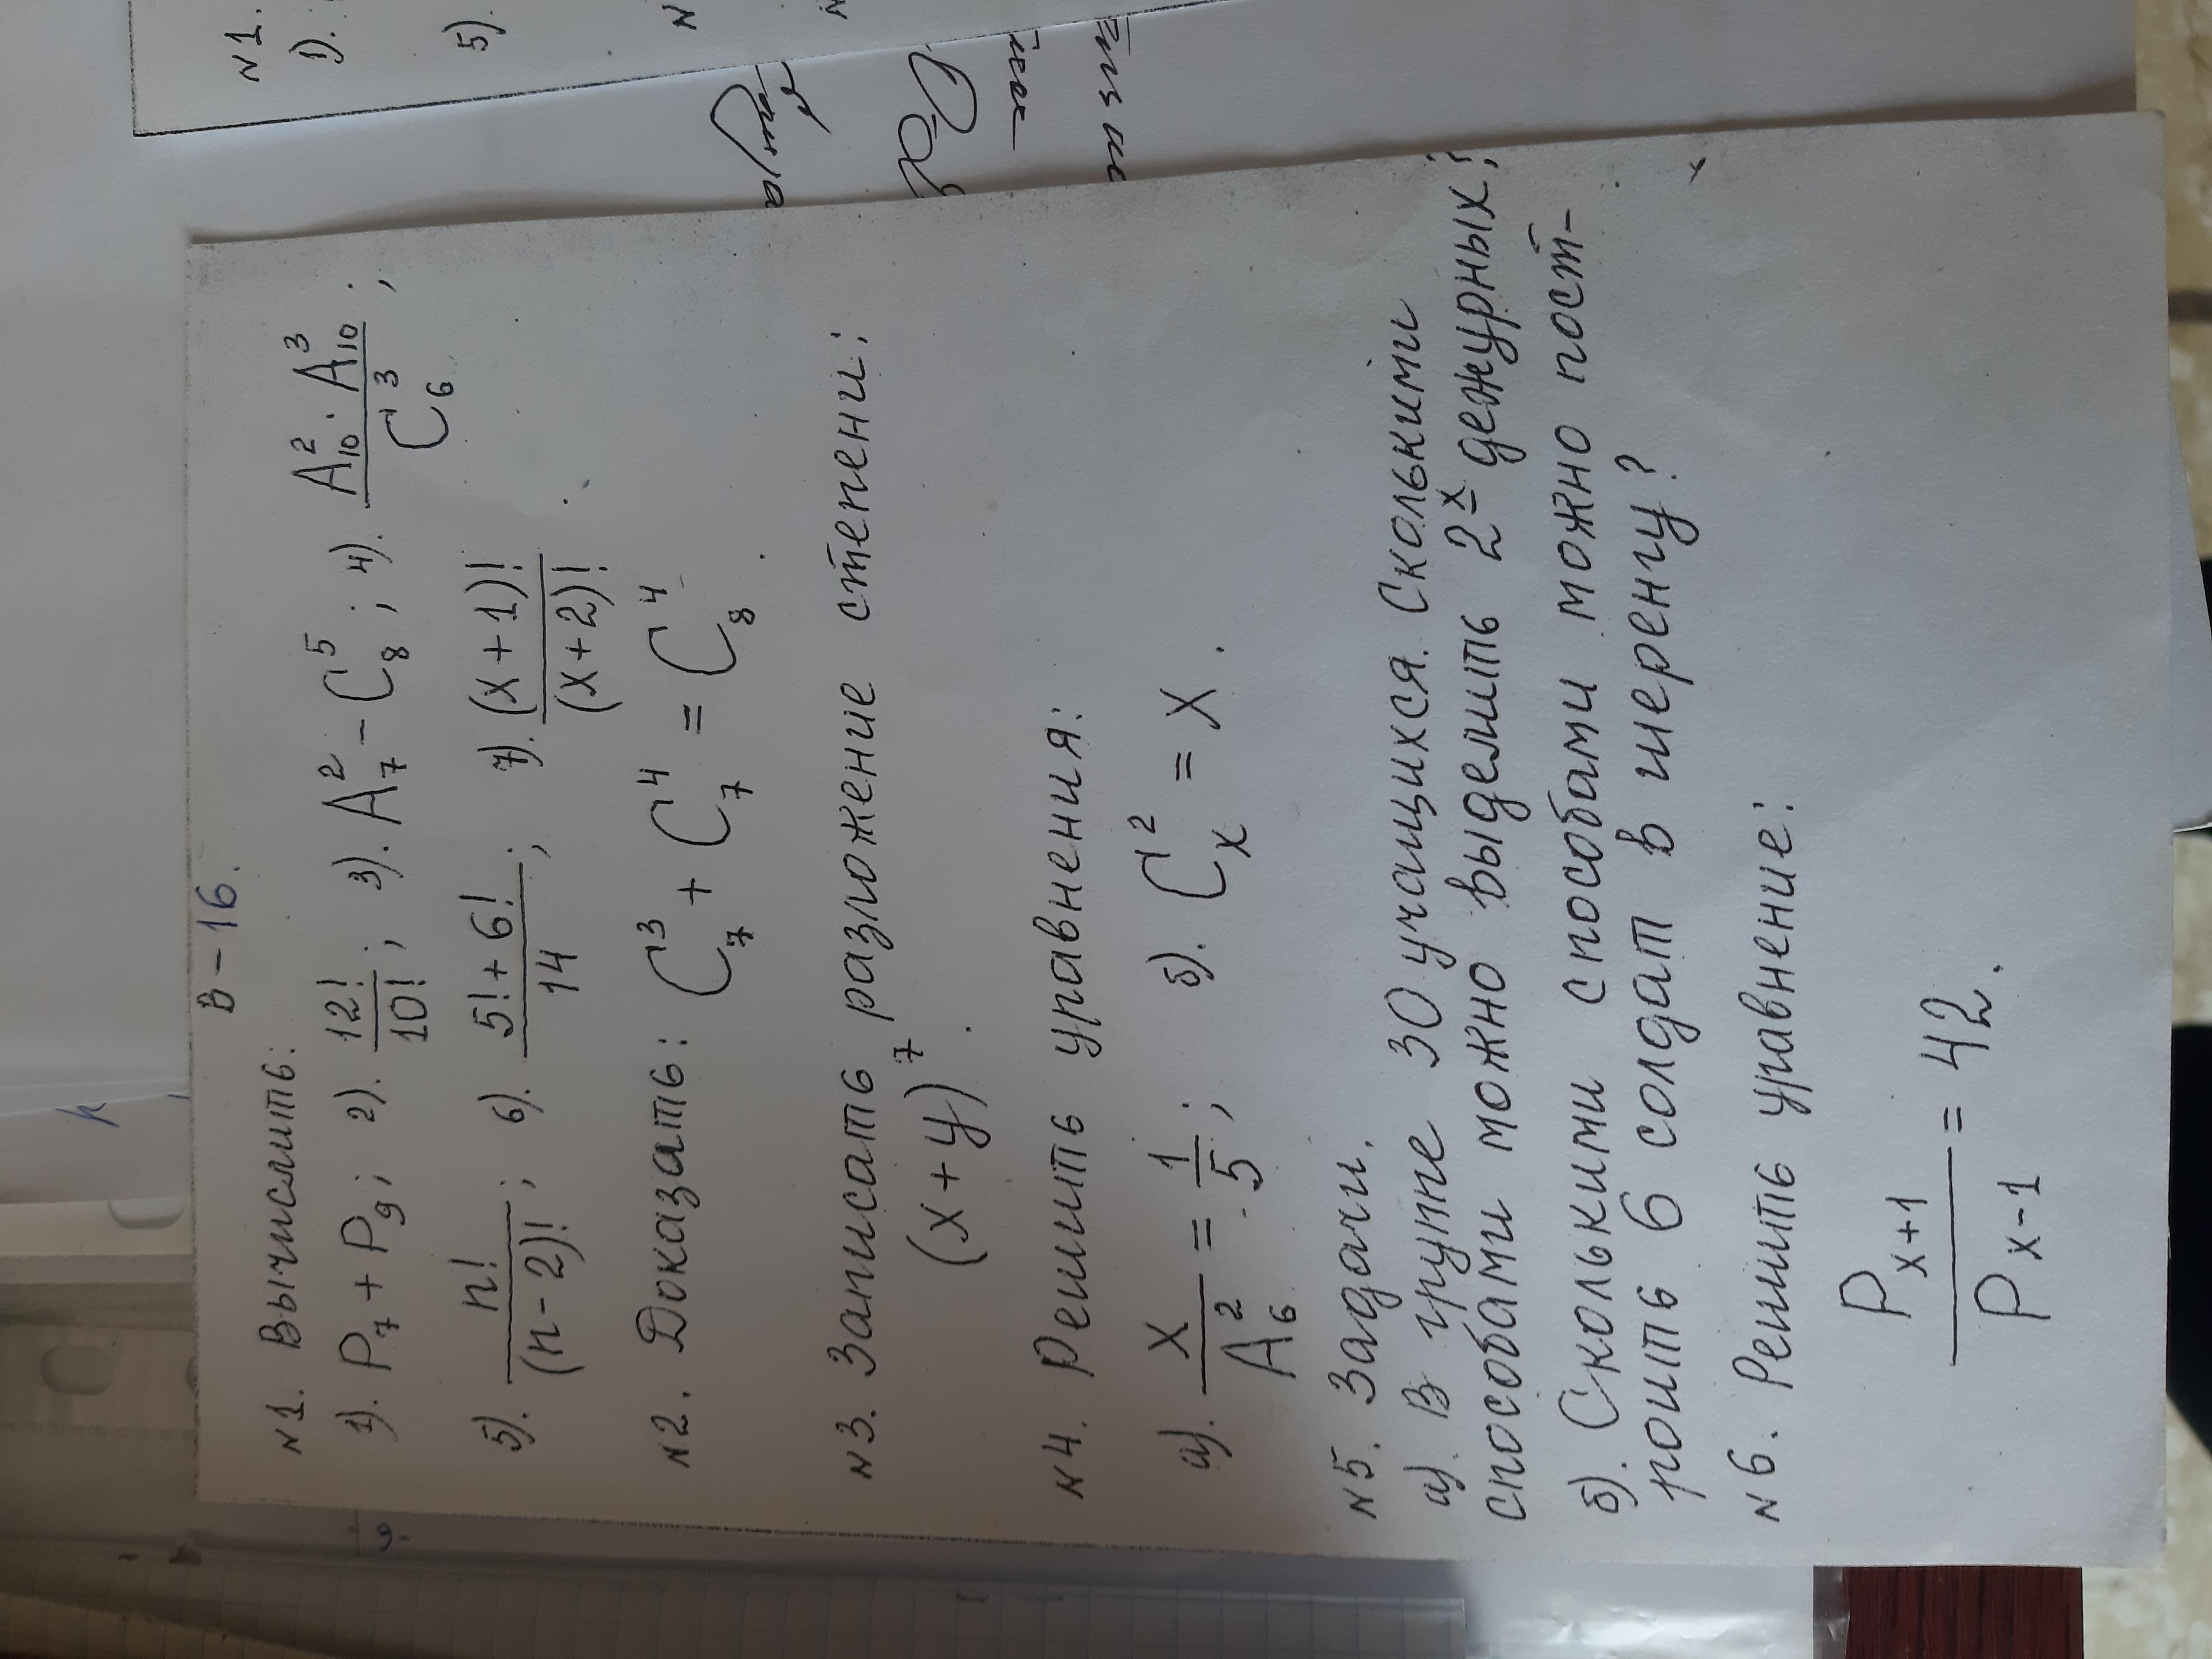 В-16.
N1. Вычислить:
1). P₇ + P₉; 2). 12!/10!; 3). A₇² - C₈⁵; 4). (A₁₀² · A₁₀³)/C₆³;
5). n!/(n-2)!; 6). (5!+6!)/14; 7). (x+1)!/(x+2)!.
N2. Доказать: C₇³ + C₇⁴ = C₈⁴.
N3. Записать разложение степени:
(x+y)⁷.
N4. Решить уравнения:
а). x/A₆² = 1/5; б). Cₓ² = x.
N5. Задачи.
а). В групе 30 учащихся. Сколькими
способами можно выделить 2ˣ дежурных?;
б). Сколькими способами можно пост-
роить 6 солдат в шеренгу?
N6. Решить уравнение:
Pₓ₊₁/Pₓ₋₁ = 42.
N1.
1).
5).
N